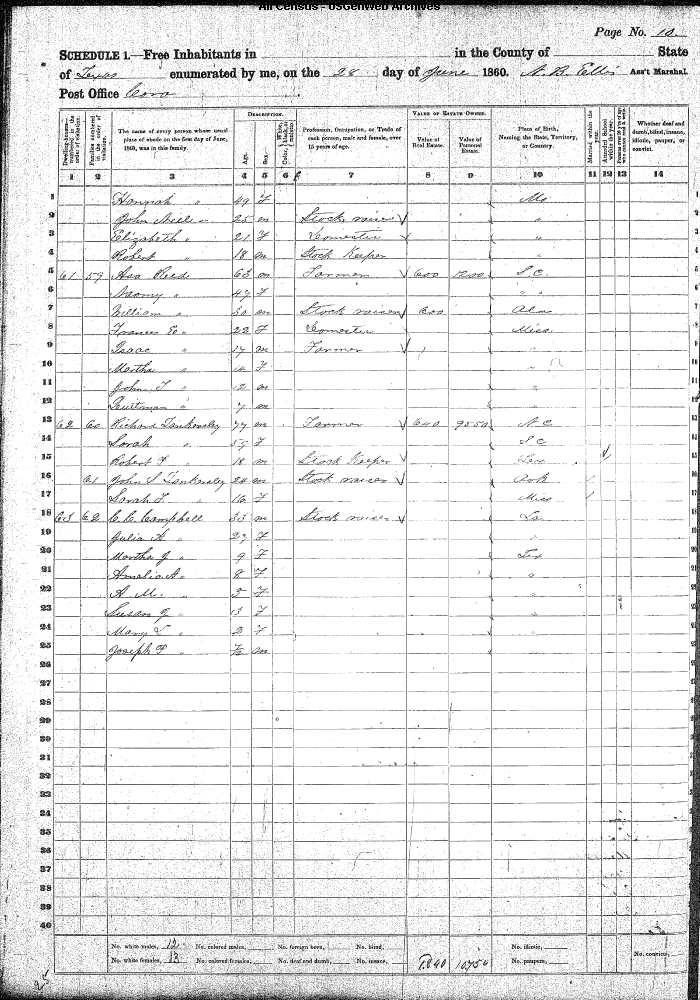 All Census - USGenWeb Archives
Page No. 10
SCHEDULE 1.—Free Inhabitants in in the County of State
of Texas enumerated by me, on the 28 day of June 1860. N. B. Ellis Ass't Marshal.
Post Office Cora
DESCRIPTION. VALUE OF ESTATE OWNED.
The name of every person whose usual place of abode on the first day of June, 1860, was in this family.
Age. Sex.
Profession, Occupation, or Trade of each person, male and female, over 15 years of age.
Value of Real Estate. Value of Personal Estate.
Place of Birth, Naming the State, Territory, or Country.
Married within the year. Attended School within the year.
Whether deaf and dumb, blind, insane, idiotic, pauper, or convict.
1 2 3 4 5 6 7 8 9 10 11 12 13 14
1 Hannah " 49 F Mo
2 John Niell " 25 m Stock raiser "
3 Elizabeth " 21 F Domestic "
4 Robert " 18 m Stock Keeper "
5 61 59 Asa Reed 63 m Farmer 600 1200 S.C.
6 Naomy " 49 F " "
7 William " 30 m Stock raiser 600 Ala
8 Frances E " 22 F Domestic Miss.
9 Isaac " 17 m Farmer "
10 Martha " 14 F "
11 John T " 12 m "
12 " 7 m "
13 62 60 Richard Tankersley 77 m Farmer 640 9550 N.C
14 Sarah " 59 F S C
15 Robert F " 18 m Stock Keeper Tex
16 61 John S Tankersley 24 m Stock raiser Ark
17 Sarah F. " 16 F Miss
18 63 62 C. C. Campbell 33 m Stock raiser La
19 Julia A " 27 F "
20 Martha J " 9 F Tex
21 Amelia A " 8 F "
22 A. M. " 5 F "
23 Susan J " 3 F "
24 Mary L " 2 F "
25 Joseph P " m
26
27
28
29
30
31
32
33
34
35
36
37
38
39
40
No. white males, 12 No. colored males, No. foreign born, No. blind, No. idiotic,
No. white females, 13 No. colored females, No. deaf and dumb, No. insane, 1.840 10750 No. paupers, No. convicts,